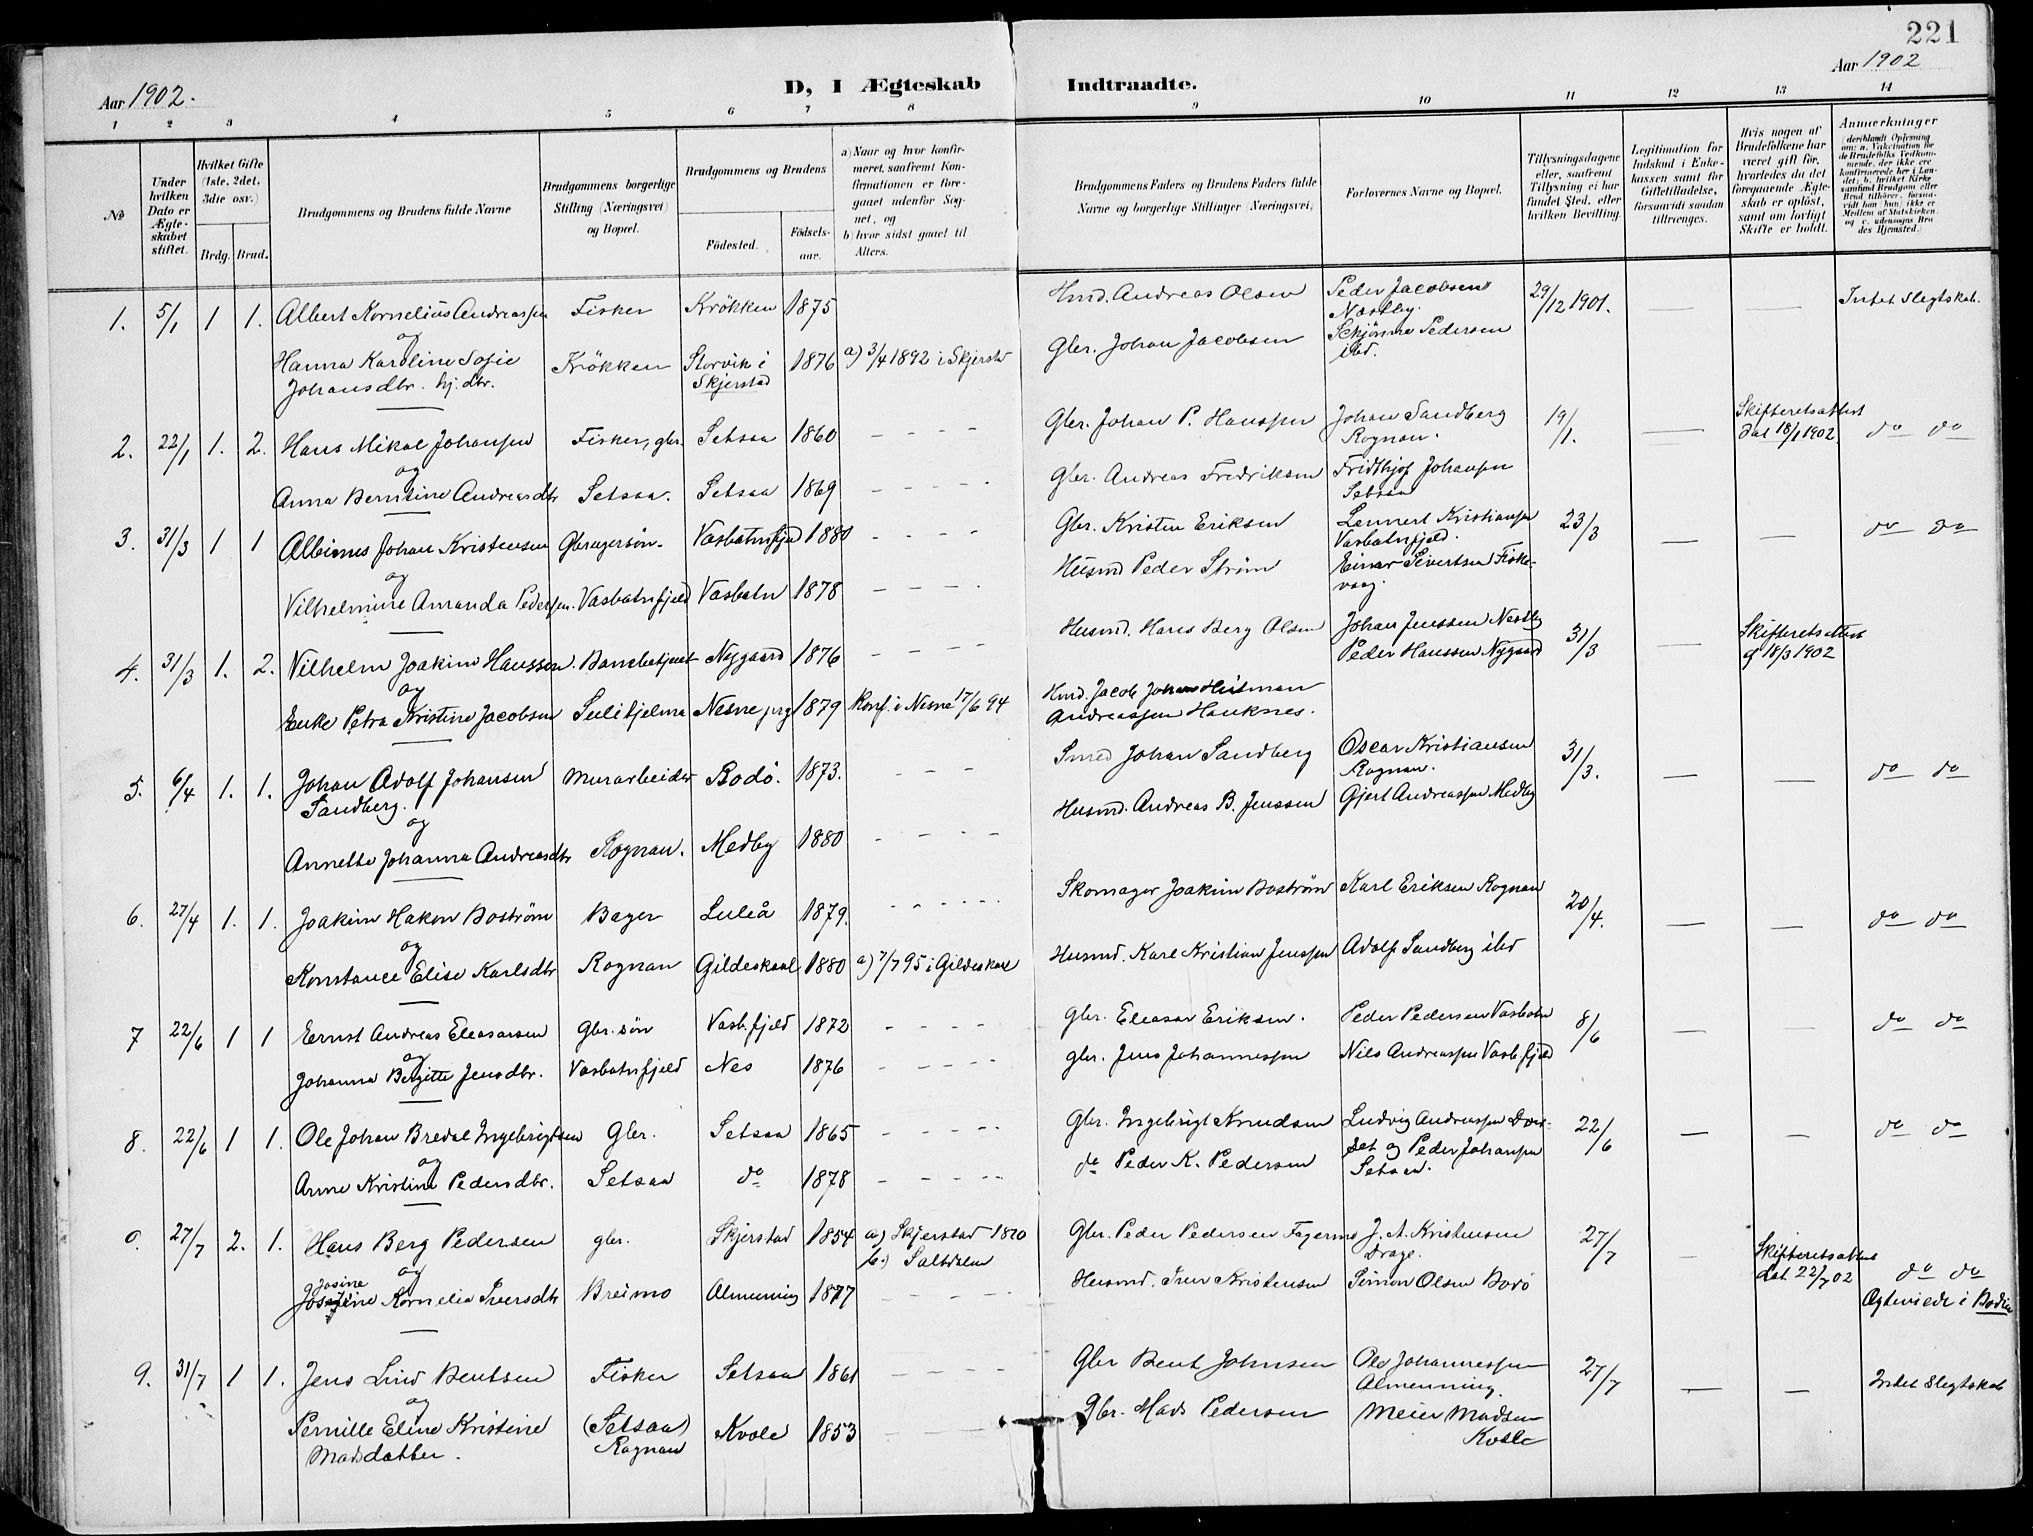 221
Aar 1902.
D, I Ægteskab Indtraadte.
Aar 1902
1 2 3 4 5 6 7 8 9 10 11 12 13 14
No
Under hvilken Dato er Ægteskabet stiftet.
Hvilket Gifte (1ste, 2det, 3die osv.)
Brdg. Brud.
Brudgommens og Brudens fulde Navne
Brudgommens borgerlige Stilling (Næringsvei) og Bopæl.
Brudgommens og Brudens
Fødested.
Fødselsaar.
a) Naar og hvor konfirmeret, saafremt Konfirmationen er foregaaet udenfor Sognet, og
b) hvor sidst gaaet til Alters.
Brudgommens Faders og Brudens Faders fulde Navne og borgerlige Stillinger (Næringsvei)
Forlovernes Navne og Bopæl.
Tillysningsdagene eller, saafremt Tillysning ei har fundet Sted, efter hvilken Bevilling.
Legitimation for Indskud i Enkekassen samt for Giftetilladelse, forsaavidt saadan tiltrænges.
Hvis nogen af Brudefolkene har været gift før, hvorledes da det foregaaende Ægteskab er opløst, samt om lovligt Skifte er holdt.
Anmærkninger
1. 5/1 1 1. Albert Kornelius Andreassen Fisker Krökken 1875 Hmd. Andreas Olsen Peder Jacobsen Næstby. 29/12 1901. — — Intet Slegtskab.
og
Hanna Karoline Sofie Johansdtr. hj. dtr. Krökken Storvik i Skjerstad 1876 a) 3/4 1892 i Skjerstad Gbr. Johan Jacobsen Schjönne Pedersen ibd.
2. 22/1 1. 2. Hans Mikal Johansen Fisker, gbr. Setsaa 1860 Gbr. Johan P. Hanssen Johan Sandberg Rognan. 19/1. — Skifteretsattest dat 18/1 1902. do do
og
Anna Berntine Andreasdtr Setsaa. Setsaa 1869 Gbr. Andreas Fredriksen Fridthjof Johansen Setsaa
3. 31/3 1 1 Albinus Johan Kristensen Gbrugersön. Vasbotnfjeld 1880 Gbr. Kristen Eriksen Lennert Kristiansen Vasbotnfjeld. 23/3 — — do do
og
Vilhelmine Amanda Pedersen. Vasbotnfjeld Vasbotn 1878 Husmd Peder Ström Einar Sivertsen Fiskevaag.
4. 31/3 1. 2. Vilhelm Joakim Hanssen. Banebetjent Nygaard 1876 Husmd. Hans Berg Olsen Johan Jenssen Nestby Peder Hanssen Nygaard 31/3 — Skifteretsattest af 18/3 1902
og
Enke Petra Kristine Jacobsen Sulitjelma Nesne prg 1879 Konf. i Nesne 17/6 94 Hmd. Jacob Johan Husman Andreassen Hauknes.
5. 6/4 1. 1. Johan Adolf Johansen Sandberg. Murarbeider Bodö. 1873. Smed Johan Sandberg Oscar Kristiansen Rognan. 31/3. — — do do
og
Annette Johanna Andreasdtr Rognan. Medby 1880 Husmd. Andreas B. Jenssen Gjert Andreassen Medby
6. 27/4 1. 1. Joakim Hakon Boström Bager Luleå 1879. Skomager Joakim Boström Karl Eriksen Rognan 20/4. — — do do
og
Konstance Elise Karlsdtr Rognan Gildeskaal 1880 a) 7/7 95 i Gildeskaal Husmd. Karl Kristian Jenssen Adolf Sandberg ibd
7 22/6 1 1 Ernst Andreas Eleasarsen Gbr. sön Vasb.fjeld 1872 Gbr. Eleasar Eriksen. Peder Pedersen Vasbotn 8/6 — — do do
og
Johanna Bergitte Jensdtr. Vasbotnfjeld Nes 1876 gbr. Jens Johannessen Nils Andreassen Vasb.fjeld
8. 22/6 1 1. Ole Johan Bredal Ingebrigtsen Gbr. Setsaa 1865 Gbr. Ingebrigt Knudsen Ludvig Andreassen Dverset og Peder Johansen Setsaa. 22/6 — — do do
og
Anne Kristine Pedersdtr. Setsaa do 1878 do Peder K. Pedersen
0. 27/7 2. 1. Hans Berg Pedersen gbr. Skjerstad 1854 a) Skjerstad 1870 b.) Saltdalen Gbr. Peder Pedersen Fagermo J. A. Kristensen Drage. 27/7 — Skifteretsattest dat. 22/7 02 do do
og
Josine
Kornelia Iversdtr Breimo Almenning 1877 Husmd. Iver Kristensen Simon Olsen Bodö Ægteviede i Bodin
9. 31/7 1 1. Jens Lind Bentsen Fisker Setsaa 1861 Gbr Bent Johnsen Ole Johannessen Almenning. 27/7 — — Intet Slegtskab
og
Pernille Eline Kristine Madsdatter. (Setsaa) Rognan Kvale 1853 Gbr. Mads Pedersen Meier Madsen Kvale